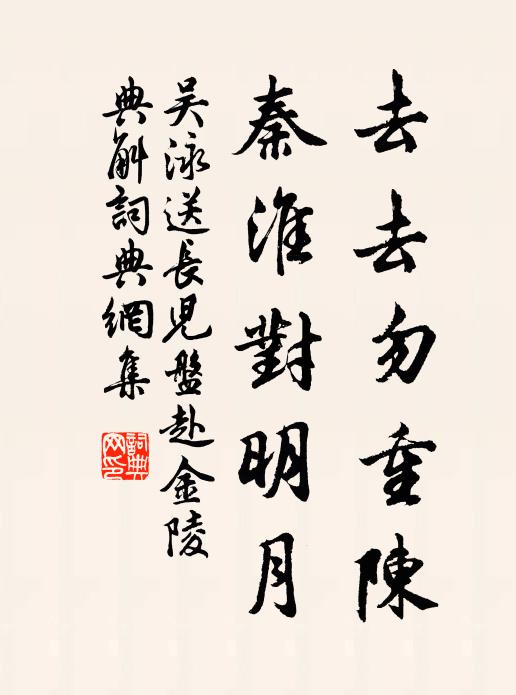 去去勿重陳
秦淮對明月
吴泳送長児盤赴金陵
典解詞典網集
詞典网印